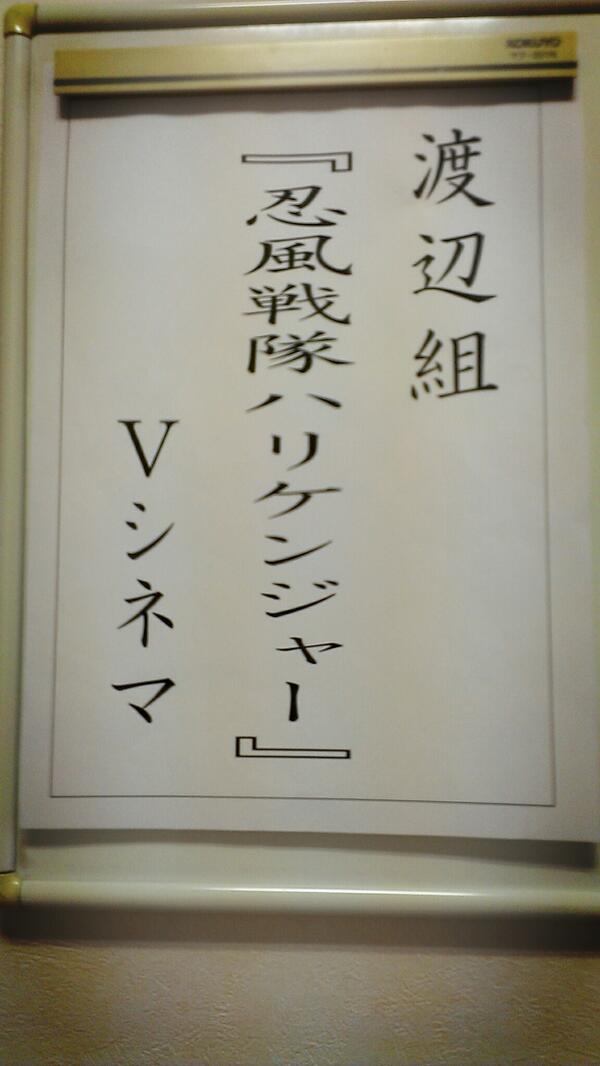 KOKUYO
渡辺組
『忍風戦隊ハリケンジャー』
Vシネマ